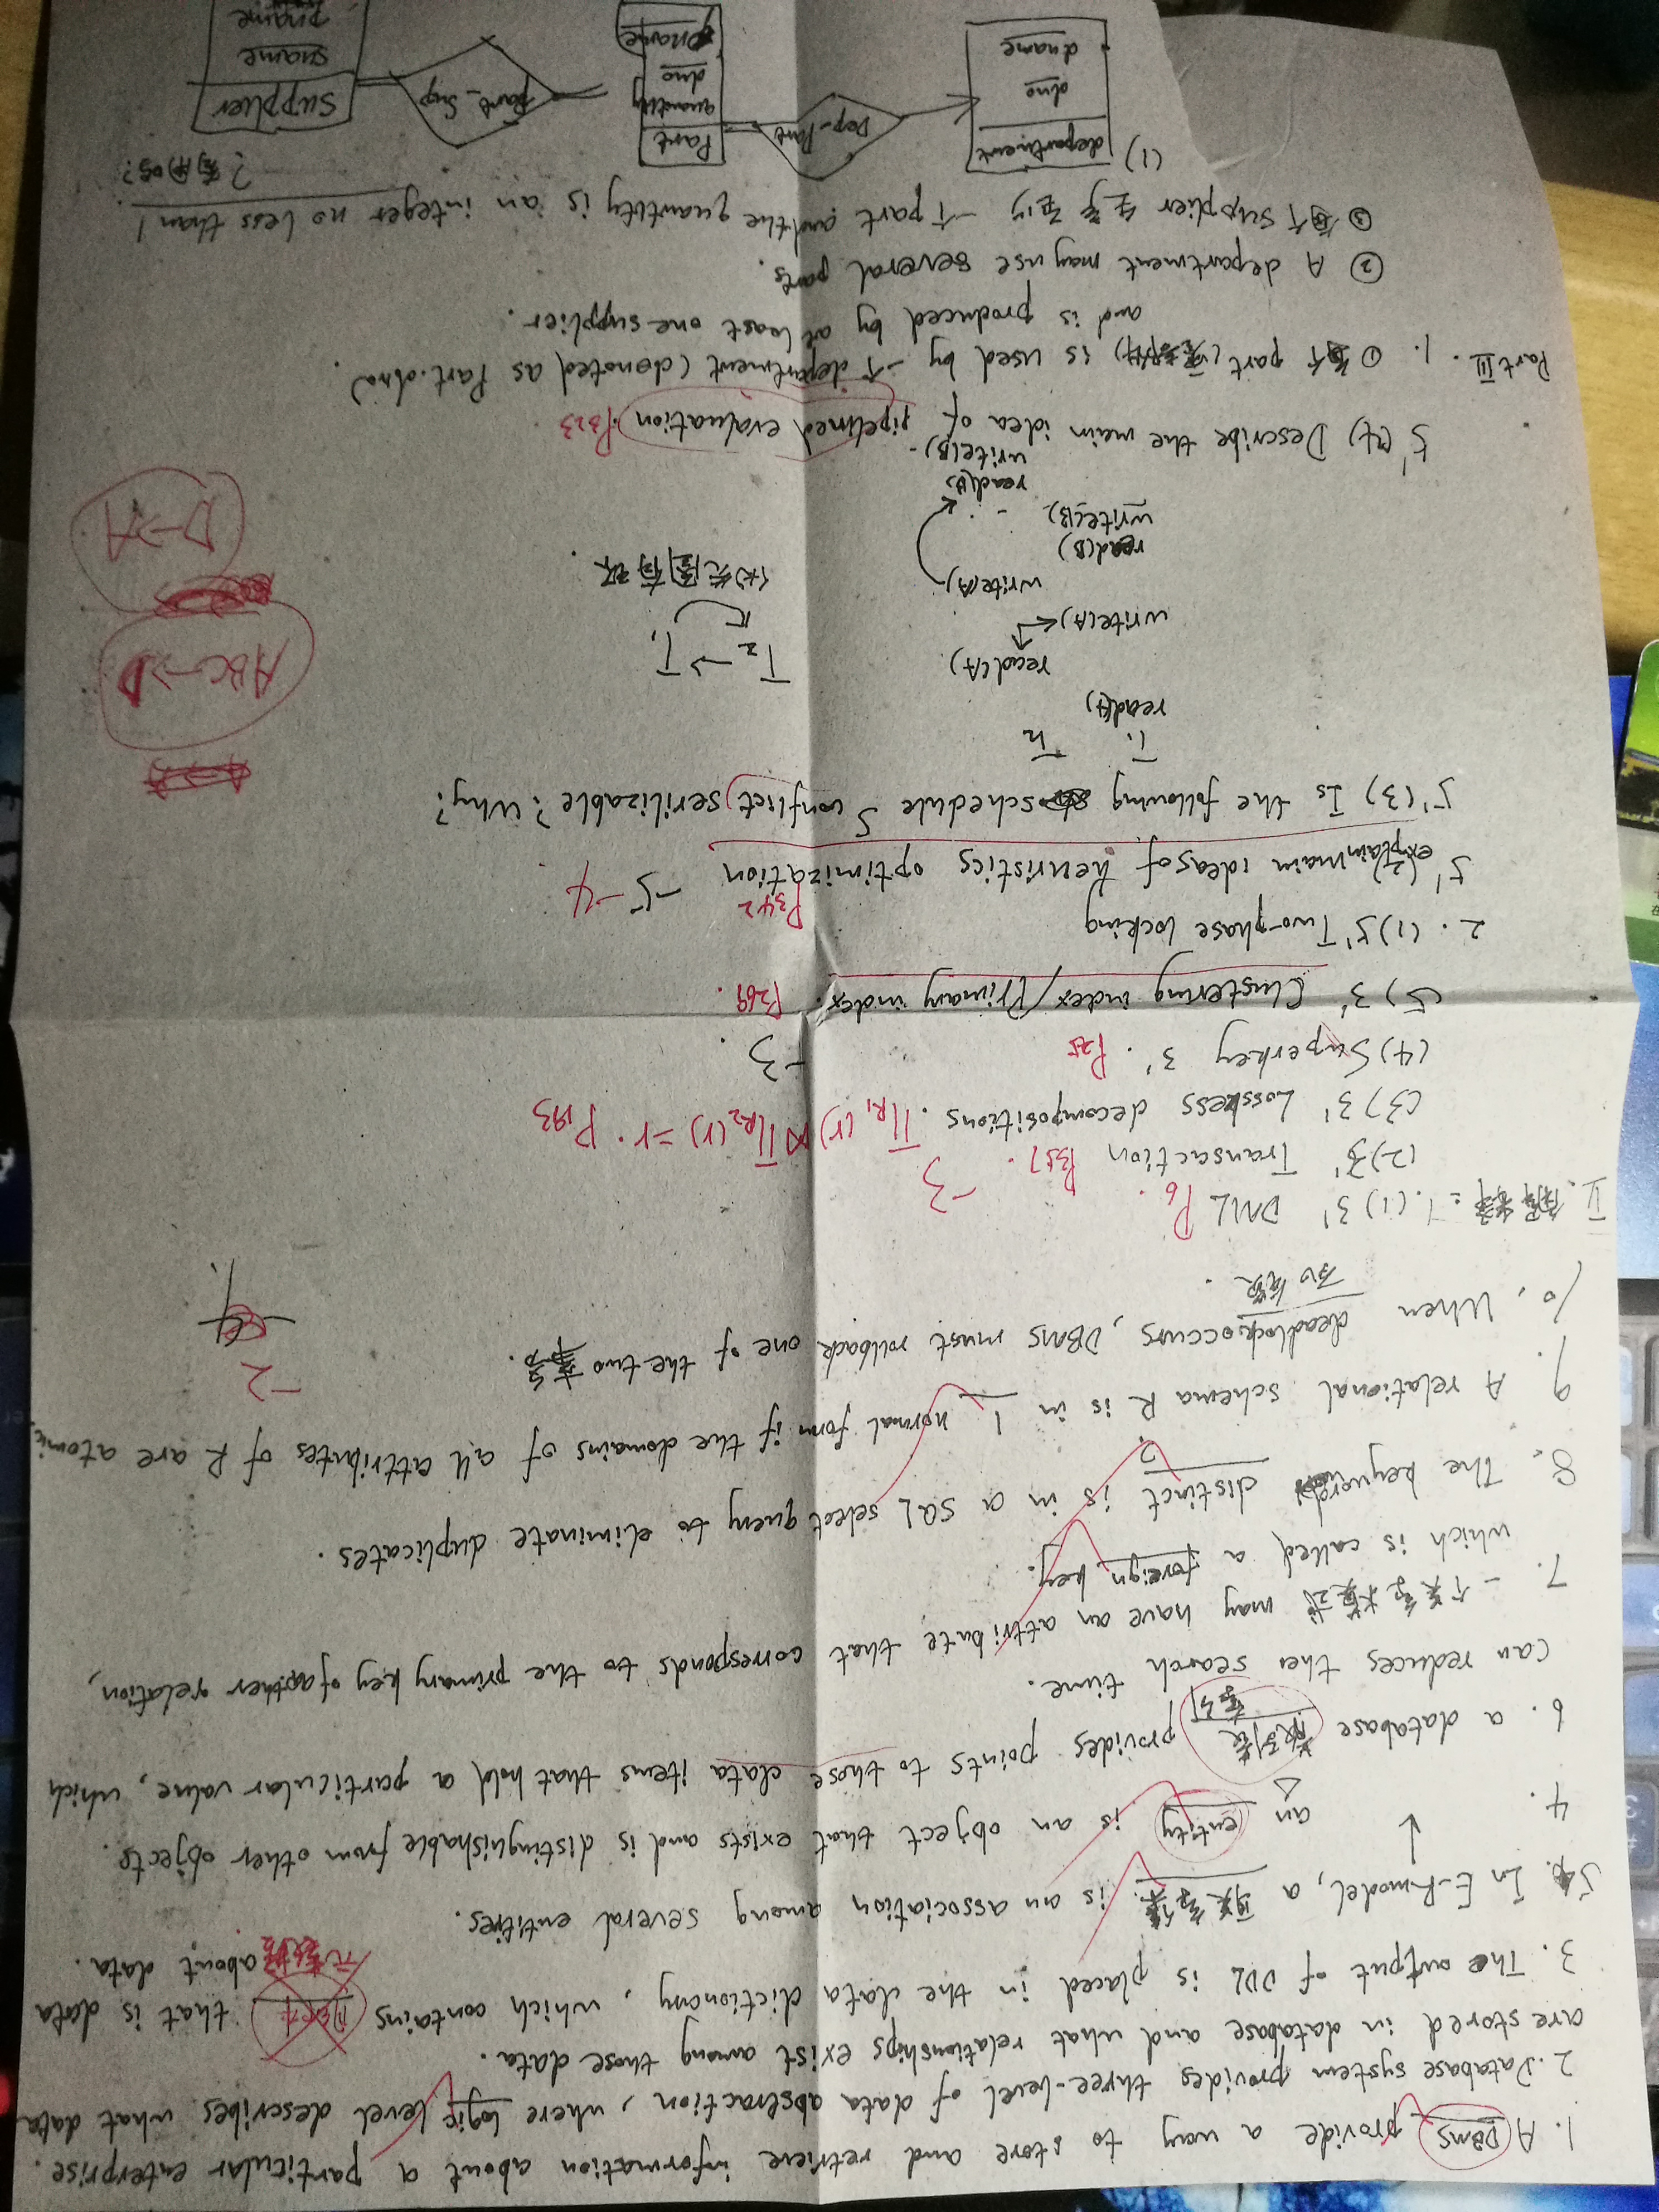 1. A DBMS provide a way to store and retrieve information about a particular enterprise.
2. Database system provides three-level of data abstraction, where logic level describes what data
are stored in database and what relationships exist among those data.
3. The output of DDL is placed in the data dictionary, which contains that is data
元数据 about data.
5. In E-R model, a 联系集 is an association among several entities.
4. an entity is an object that exists and is distinguishable from other objects.
6. a database 散列表 provides points to those data items that hold a particular value, which
索引
can reduces the search time.
7. 一个关系模式 may have an attribute that corresponds to the primary key of another relation,
which is called a foreign key.
8. The keyword distinct is in a SQL select query to eliminate duplicates.
?
9. A relational schema R is in 1 normal form if the domains of all attributes of R are atomic.
-2
10. When deadlock occurs, DBMS must rollback one of the two 事务.
-4
死锁.
II. 解释: 1. (1) 3' DML P6.
(2) 3' Transaction P357. -3
(3) 3' Lossless decompositions. ΠR1(r) ⋈ ΠR2(r) = r. P193
(4) Superkey 3'. P25 -3.
(5) 3' Clustering index/Primary index. P269.
2. (1) 5' Two-phase locking
P342
5' (2) explain main ideas of heuristics optimization -5 -4
5' (3) Is the following schedule S conflict serilizable? Why?
T1 T2
read(A)
ABC→D
read(A).
T2→T1
write(A)
write(A)
优先图有环.
read(B)
D→A
write(B)
read(B)
write(B).
5' (4) Describe the main idea of pipelined evaluation. P323
Part III. 1. ① 每个 part (零部件) is used by 一个 department (denoted as Part.dno).
and is produced by at least one supplier.
② A department may use several parts.
③ 每个 supplier 生产至少 一个 part and the quantity is an integer no less than 1.
? 有用吗?
(1) department Dep_Part Part Part_Sup supplier
dno quantity sname
dname dno pname
pname